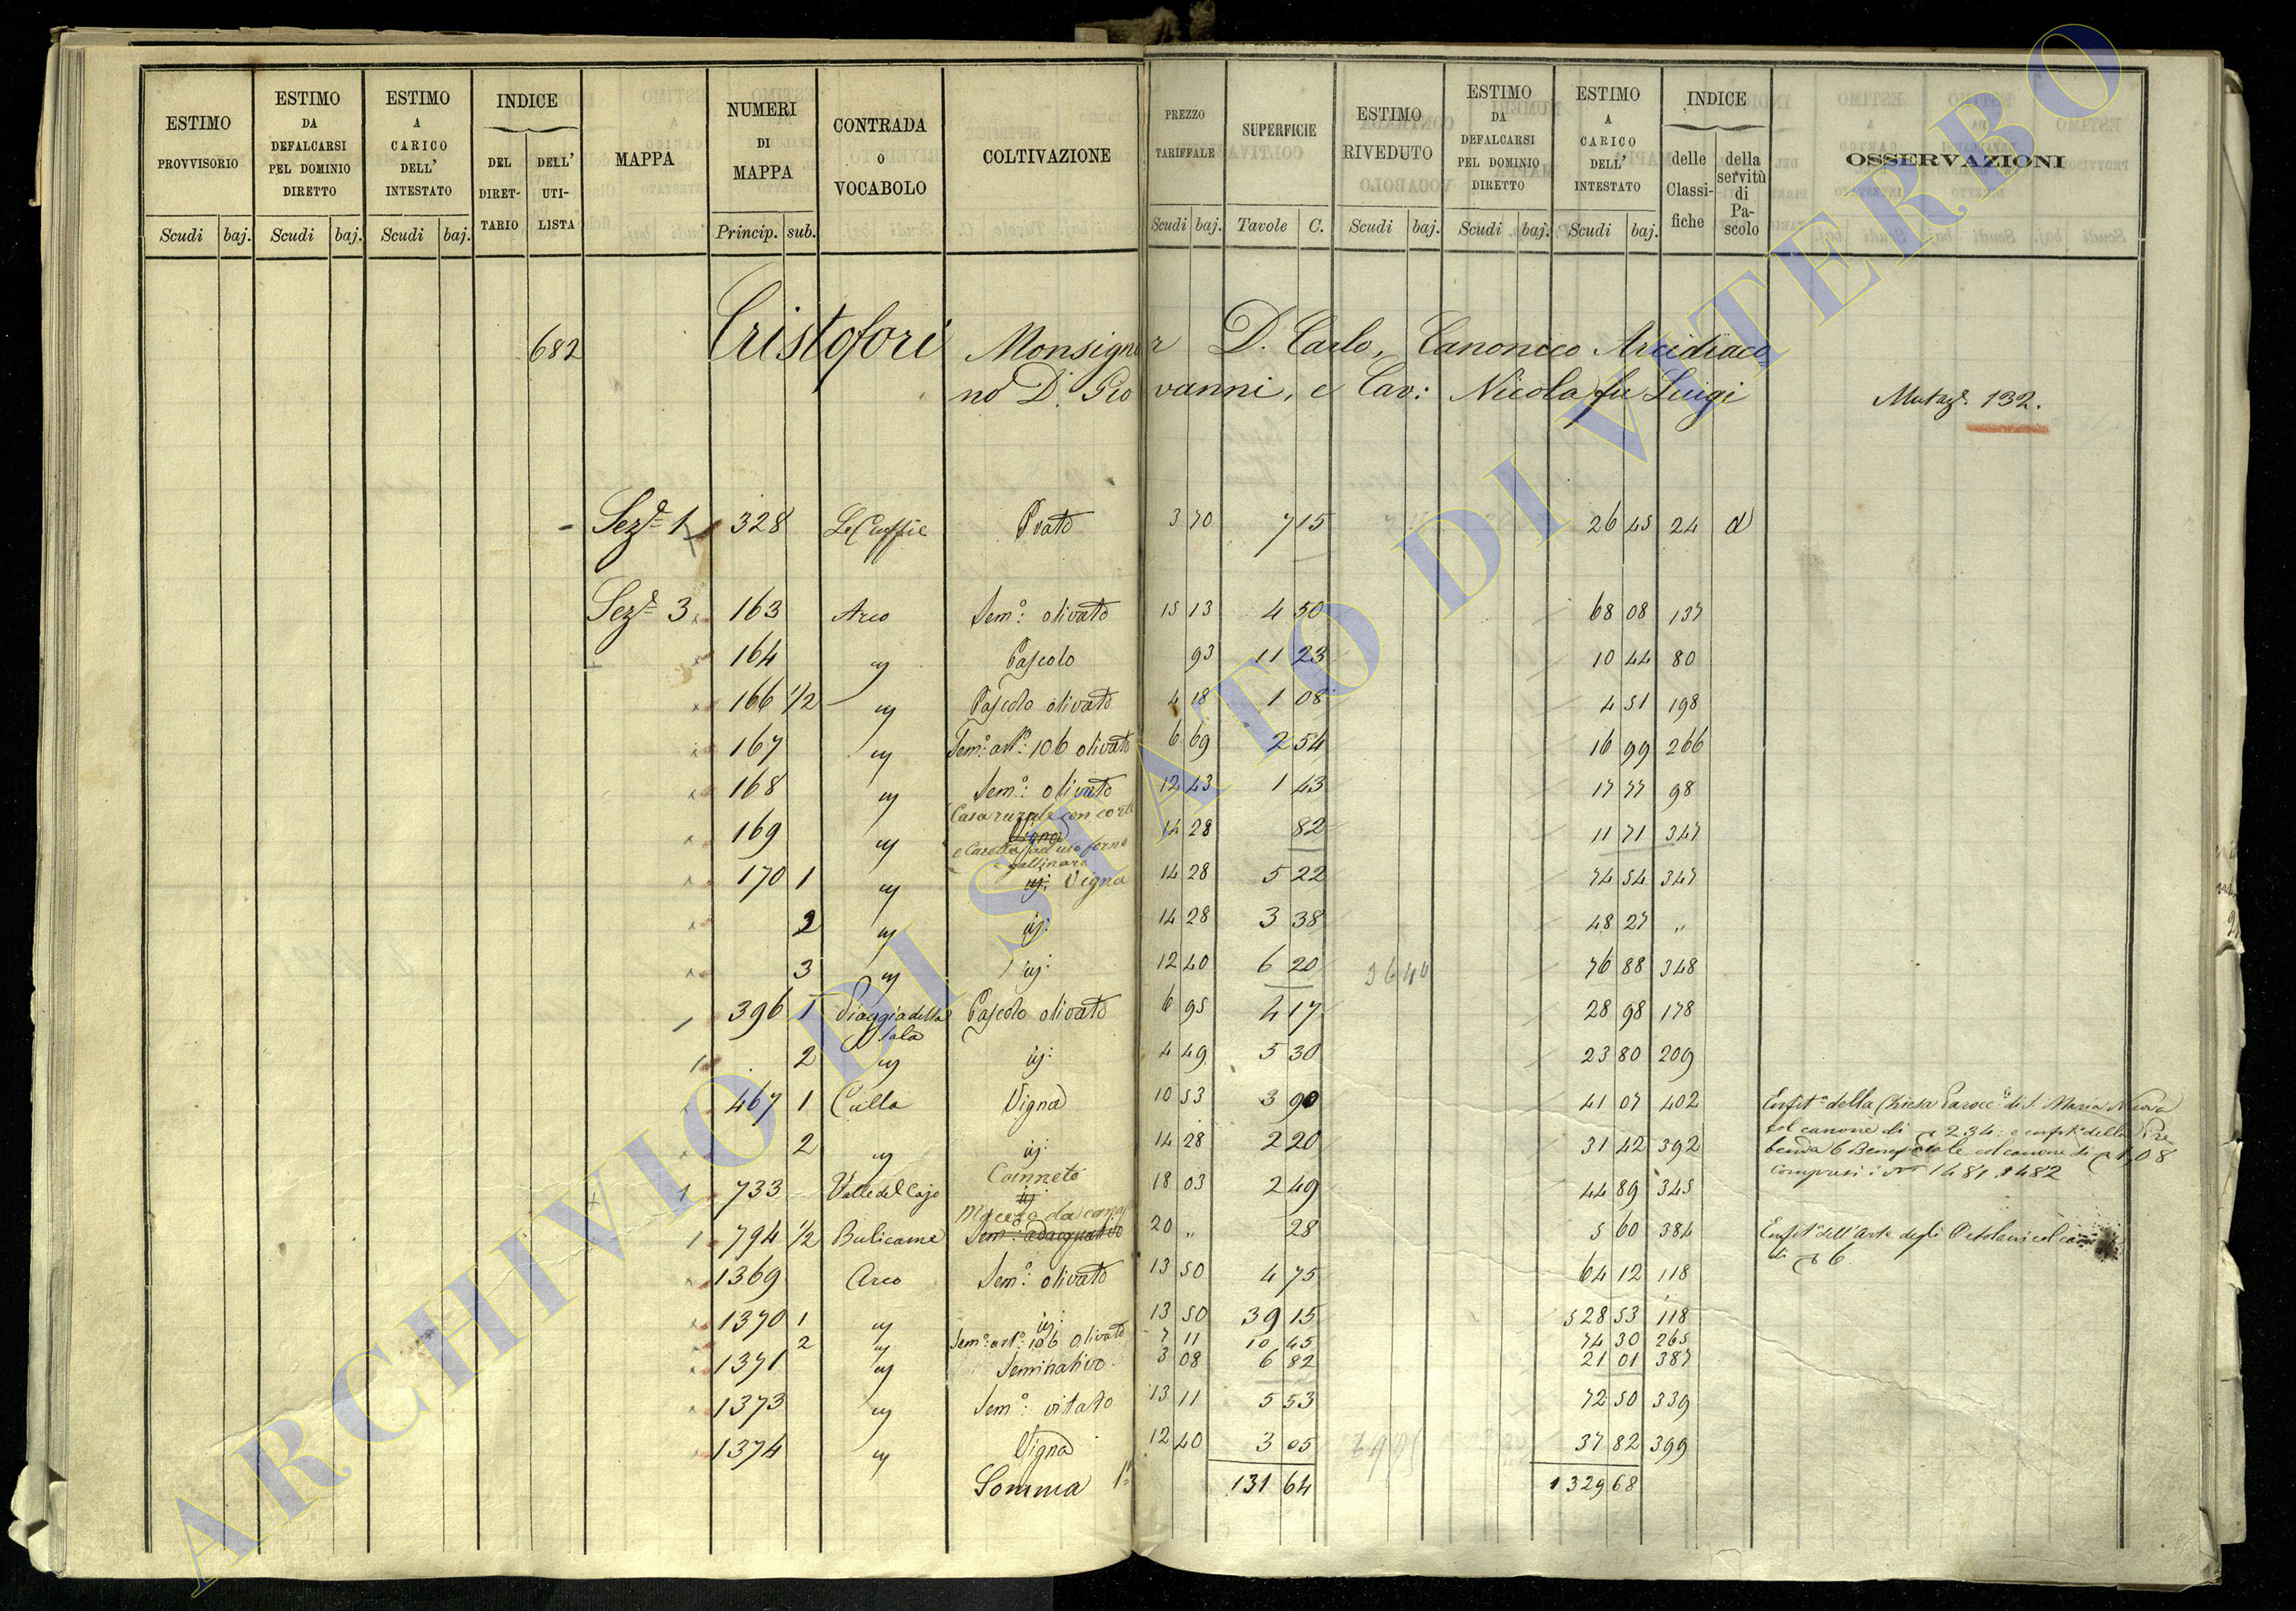 ESTIMO PROVVISORIO | ESTIMO DA DEFALCARSI PEL DOMINIO DIRETTO | ESTIMO A CARICO DELL' INTESTATO | INDICE | MAPPA | NUMERI DI MAPPA | CONTRADA O VOCABOLO | COLTIVAZIONE | PREZZO TARIFFALE | SUPERFICIE | ESTIMO RIVEDUTO | ESTIMO DA DEFALCARSI PEL DOMINIO DIRETTO | ESTIMO A CARICO DELL' INTESTATO | INDICE | OSSERVAZIONI
DEL DIRETTARIO | DELL' UTILISTA | delle Classifiche | della servitù di Pascolo
Scudi | baj. | Scudi | baj. | Scudi | baj. | Princip. | sub. | Scudi | baj. | Tavole | C. | Scudi | baj. | Scudi | baj. | Scudi | baj.
682 Cristofori Monsignor D. Carlo, Canonico Arcidiaco
no D. Giovanni, e Cav: Nicola fu Luigi
Mutaz. 132.
Sez. 1 328 Prato 3 70 7 15 26 45 24 d
Sez. 3 163 Arco Sem.o: olivato 15 13 4 50 68 08 137
164 " Pascolo 93 11 23 10 44 80
166 1/2 " Pascolo olivato 4 18 1 08 4 51 198
167 " Sem.o: art.o: 106 olivato 6 69 2 54 16 99 266
168 " Sem.o: olivato 12 43 1 43 17 77 98
Casa rurale con corte
169 " Vigna 14 28 82 11 71 347
ad uso forno
gallinaro
170 1 " Vigna 14 28 5 22 74 54 347
2 " " 14 28 3 38 48 27 "
3 " " 12 40 6 20 36 40 76 88 348
396 1 Piaggia della Sala Pascolo olivato 6 95 4 17 28 98 178
2 " " 4 49 5 30 23 80 209
467 1 Culla Vigna 10 53 3 90 41 07 402
Enfit.a della Chiesa Parocc. di S. Maria Nuova
col canone di 2 34: e enfit. della Pre
2 " " 14 28 2 20 31 42 392
benda 6 Beneficiale col canone di 1,08
compresi i N.ri 1481 1482
Canneto
733 Valle del Cajo 18 03 2 49 44 89 345
Macera da canapa
794 1/2 Bulicame Sem.o: adacquativo 20 " 28 5 60 384
Enfit. dell'Arte degli Ortolani col
di 6
1369 Arco Sem.o: olivato 13 50 4 75 64 12 118
1370 1 " " 13 50 39 15 528 53 118
2 " Sem.o: art.o: 106 Olivato 7 11 10 45 74 30 265
1371 " Seminativo 3 08 6 82 21 01 387
1373 " Sem.o: vitato 13 11 5 53 72 50 339
1374 " Vigna 12 40 3 05 37 82 399
Somma 1.a 131 64 1329 68
ARCHIVIO DI STATO DI VITERBO